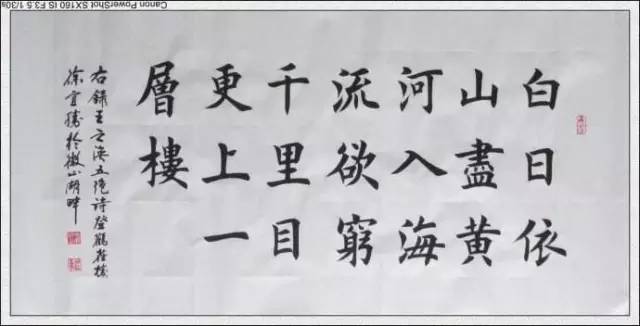 白日依
山盡黃
河入海
流欲窮
千里目
更上一
層樓
右錄王之渙五絕詩登鸛雀樓
徐宜勝於微山湖畔
Canon PowerShot SX160 IS F3.5 1/30s